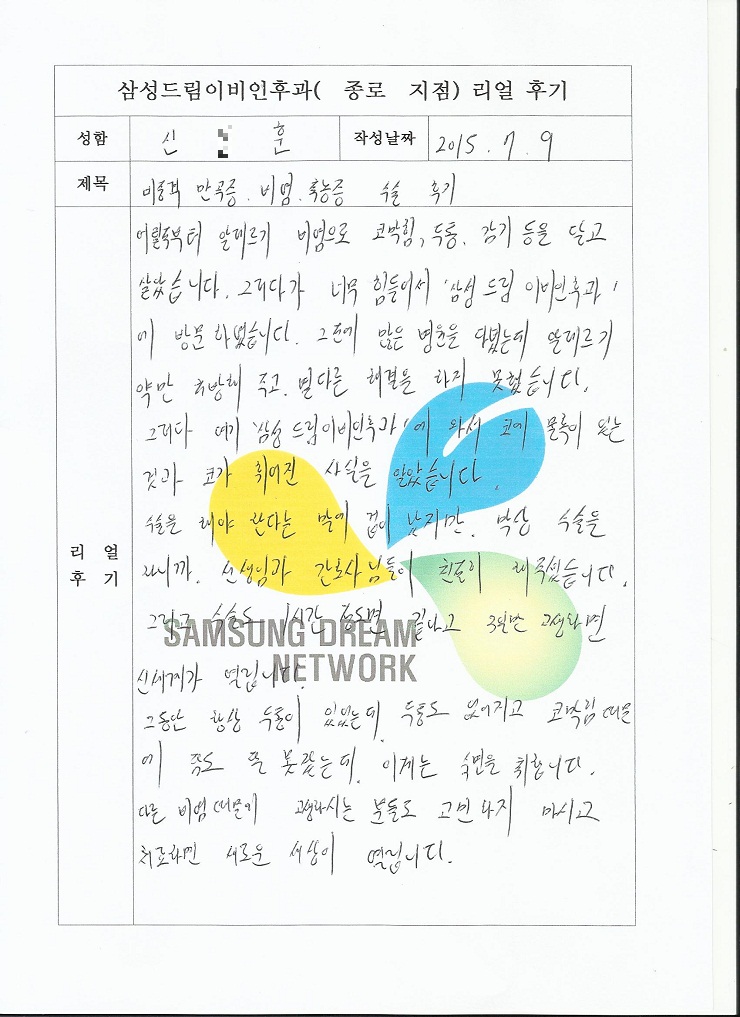 삼성드림이비인후과( 종로 지점) 리얼 후기
성함 신 훈 작성날짜 2015. 7. 9
제목 비중격 만곡증. 비염. 축농증 수술 후기
어릴적부터 알레르기 비염으로 코막힘, 두통, 감기 등을 달고
살았습니다. 그러다가 너무 힘들어서 '삼성 드림 이비인후과'
에 방문 하였습니다. 그전에 많은 병원을 다녔는데 알레르기
약만 처방해 주고. 별다른 해결을 하지 못했습니다.
그러다 여기 '삼성 드림이비인후과'에 와서 코에 물혹이 있는
것과 코가 휘어진 사실을 알았습니다.
수술을 해야 한다는 말에 겁이 났지만. 막상 수술을
리 얼
후 기
하니까. 선생님과 간호사님들이 친절히 해주셨습니다.
그리고 수술도 1시간 정도면 끝나고 3일만 고생하면
SAMSUNG DREAM
NETWORK
신세계가 열립니다.
그동안 항상 두통이 있었는데. 두통도 없어지고 코막힘 때문
에 잠도 못잤는데. 이제는 숙면을 취합니다.
다른 비염때문에 고생하시는 분들도 고민 하지 마시고
치료하면 새로운 세상이 열립니다.